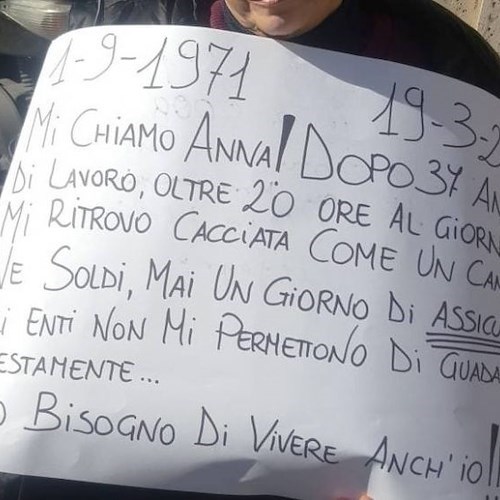 1-9-1971 19-3-2
MI CHIAMO ANNA! DOPO 37 AN
DI LAVORO, OLTRE 20 ORE AL GIORN
MI RITROVO CACCIATA COME UN CAN
NE SOLDI, MAI UN GIORNO DI ASSICU
I ENTI NON MI PERMETTONO DI GUADA
ESTAMENTE...
O BISOGNO DI VIVERE ANCH'IO!!